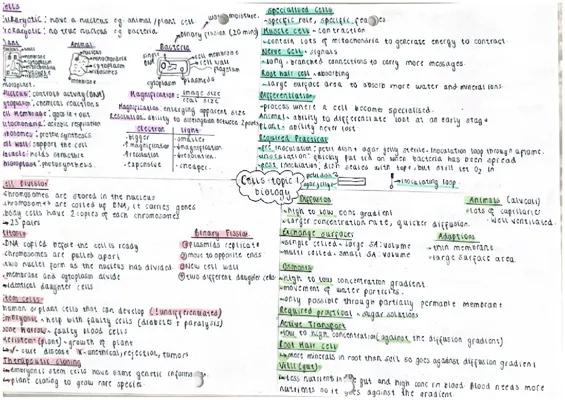 Cells
Eukaryotic: have a nucleus eg: animal/plant cell
Prokaryotic: no true nucleus eg bacteria
moisture.
binary fission (20 min)
Plant
Animal
Bacteria
nucleus
mitochondria
cytoplasm
ribosomes
cell membrane
cell wall
flagellum
cytoplasm
plasmids
Nucleus: controls activity (DNA)
Cytoplasm: chemical reactions
Cell membrane:
Mitochondria: aerobic respiration
Ribosomes: protein synthesis
Cell wall: support the cell
Chloroplast: photosynthesis.
Magnification: image size
real size
Magnification: enlarging apparent size
Resolution: ability to distinguish between 2 points
electron
light
bigger
smaller
↑ magnification
↑ resolution
expensive
cheaper.
Cells-topic 1
biology
Cell Division
chromosomes are stored in the nucleus
chromosomes are coiled up DNA, it carries genes
body cells have 2 copies of each chromosomes
23 pairs
Mitosis
DNA copied before the cell is ready
chromosomes are pulled apart
two nuclei form as the nucleus has divided
membrane and cytoplasm divide
identical daughter cells
Binary Fission
① plasmids replicate
② move to opposite ends
③ new cell wall
④ two different daughter cells
Stem cells
human or plant cells that can develop (!undifferentiated)
Embryonic - help with faulty cells (diabetes + paralysis)
Bone marrow - faulty blood cells
Meristem (plant) - growth of plant
cure disease x - unethical, rejection, tumors
Therapeutic cloning
embryonic stem cells have same genetic information
plant cloning to grow rare species
Specialised Cells
- specific role, specific features
Muscle cell - contraction
- contain lots of mitochondria to generate energy to contract
Nerve cell - signals
- long, branched connections to carry more messages.
Root hair cell - absorbing
- large surface area to absorb more water and minerals.
Differentiation
- process where a cell become specialised.
Animal - ability to differentiate lost at an early stage
Plant - ability never lost
Required Practical
inoculating loop
Diffusion
high to low conc gradient
larger concentration rate, quicker diffusion.
Animals (alveoli)
lots of capillaries
well ventilated.
Exchange Surfaces
single celled - large SA:volume
multi celled - small SA:volume
Adaptions
thin membrane
large surface area.
Osmosis
high to low concentration gradient
movement of water particles.
only possible through partially permable membrane
Required practical - sugar solutions
Active Transport
low to high concentration (against the diffusion gradient)
Root Hair cell
more minerals in root than soil so goes against diffusion gradient
Villi (gut)
less nutrient in gut and high conc in blood. Blood needs more
nutrients so it goes against the gradient